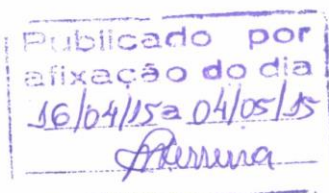 Publicado por
afixação do dia
16/04/15 a 04/05/15